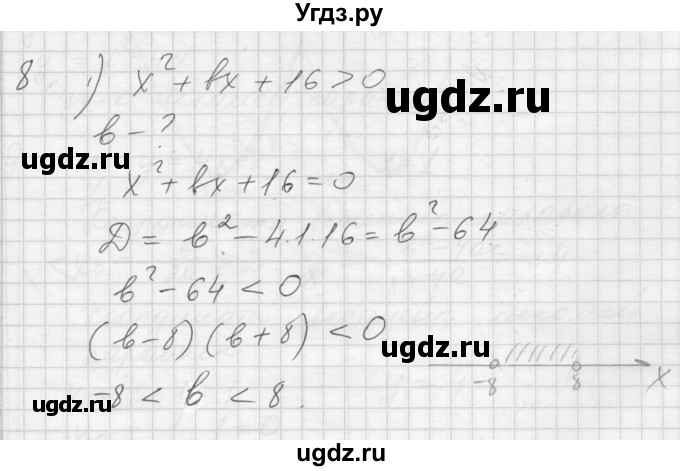 Угдз.ру
8 1) x² + bx + 16 > 0
ugdz.ru
b - ?
ugdz.ru
x² + bx + 16 = 0
ugdz.ru
D = b² - 4·1·16 = b² - 64
b² - 64 < 0
ugdz.ru
(b - 8)(b + 8) < 0
ugdz.ru
-8 8 x
-8 < b < 8.
ugdz.ru
ugdz.ru